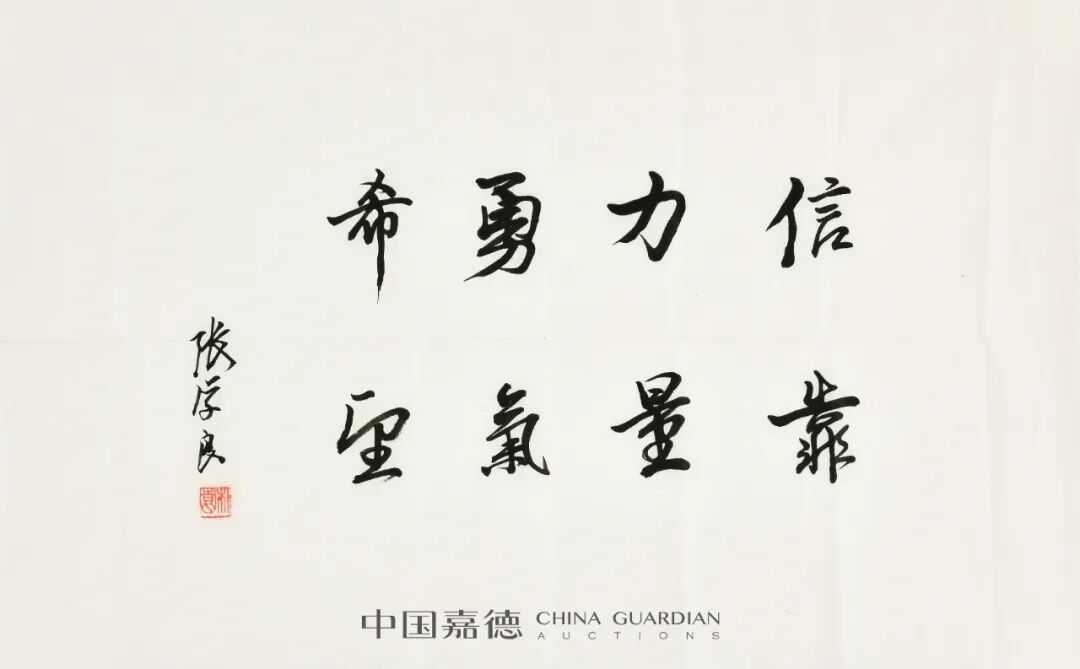 信靠
力量
勇氣
希望
張學良
中国嘉德 CHINA GUARDIAN
AUCTIONS